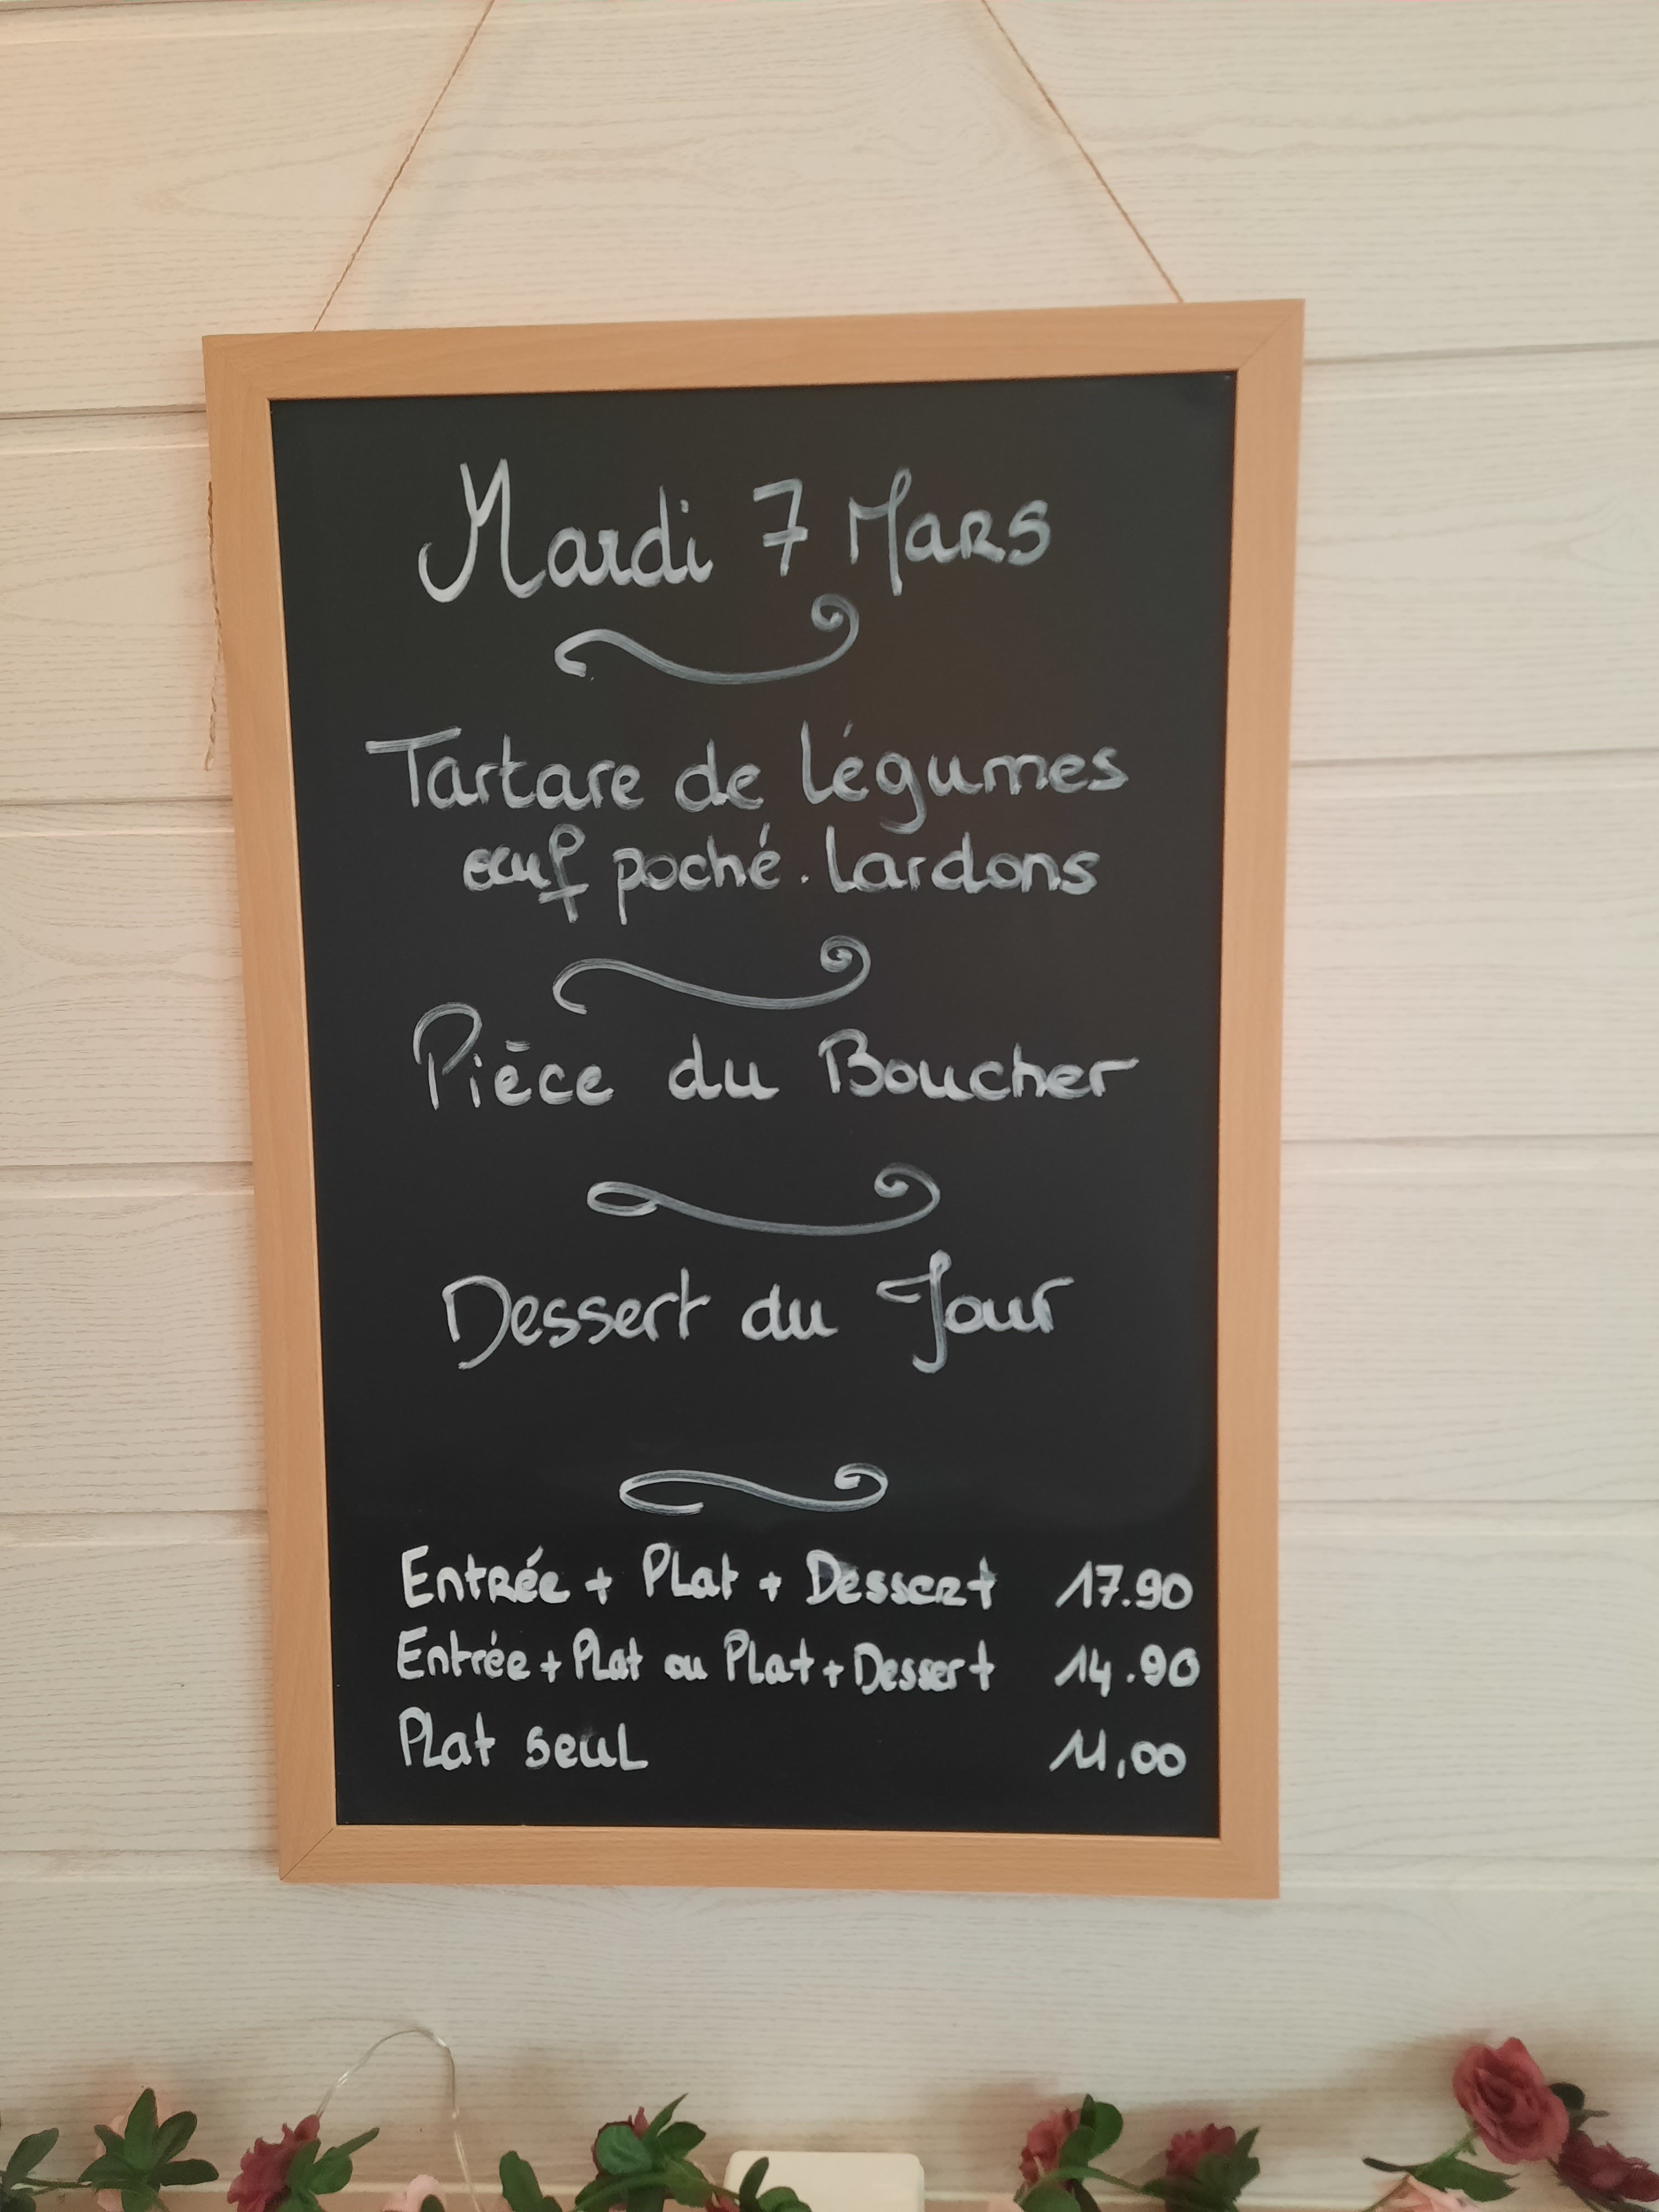 Mardi 7 Mars
Tartare de légumes
œuf poché. lardons
Pièce du Boucher
Dessert du Jour
Entrée + Plat + Dessert 17.90
Entrée + Plat ou Plat + Dessert 14.90
Plat seul 11,00